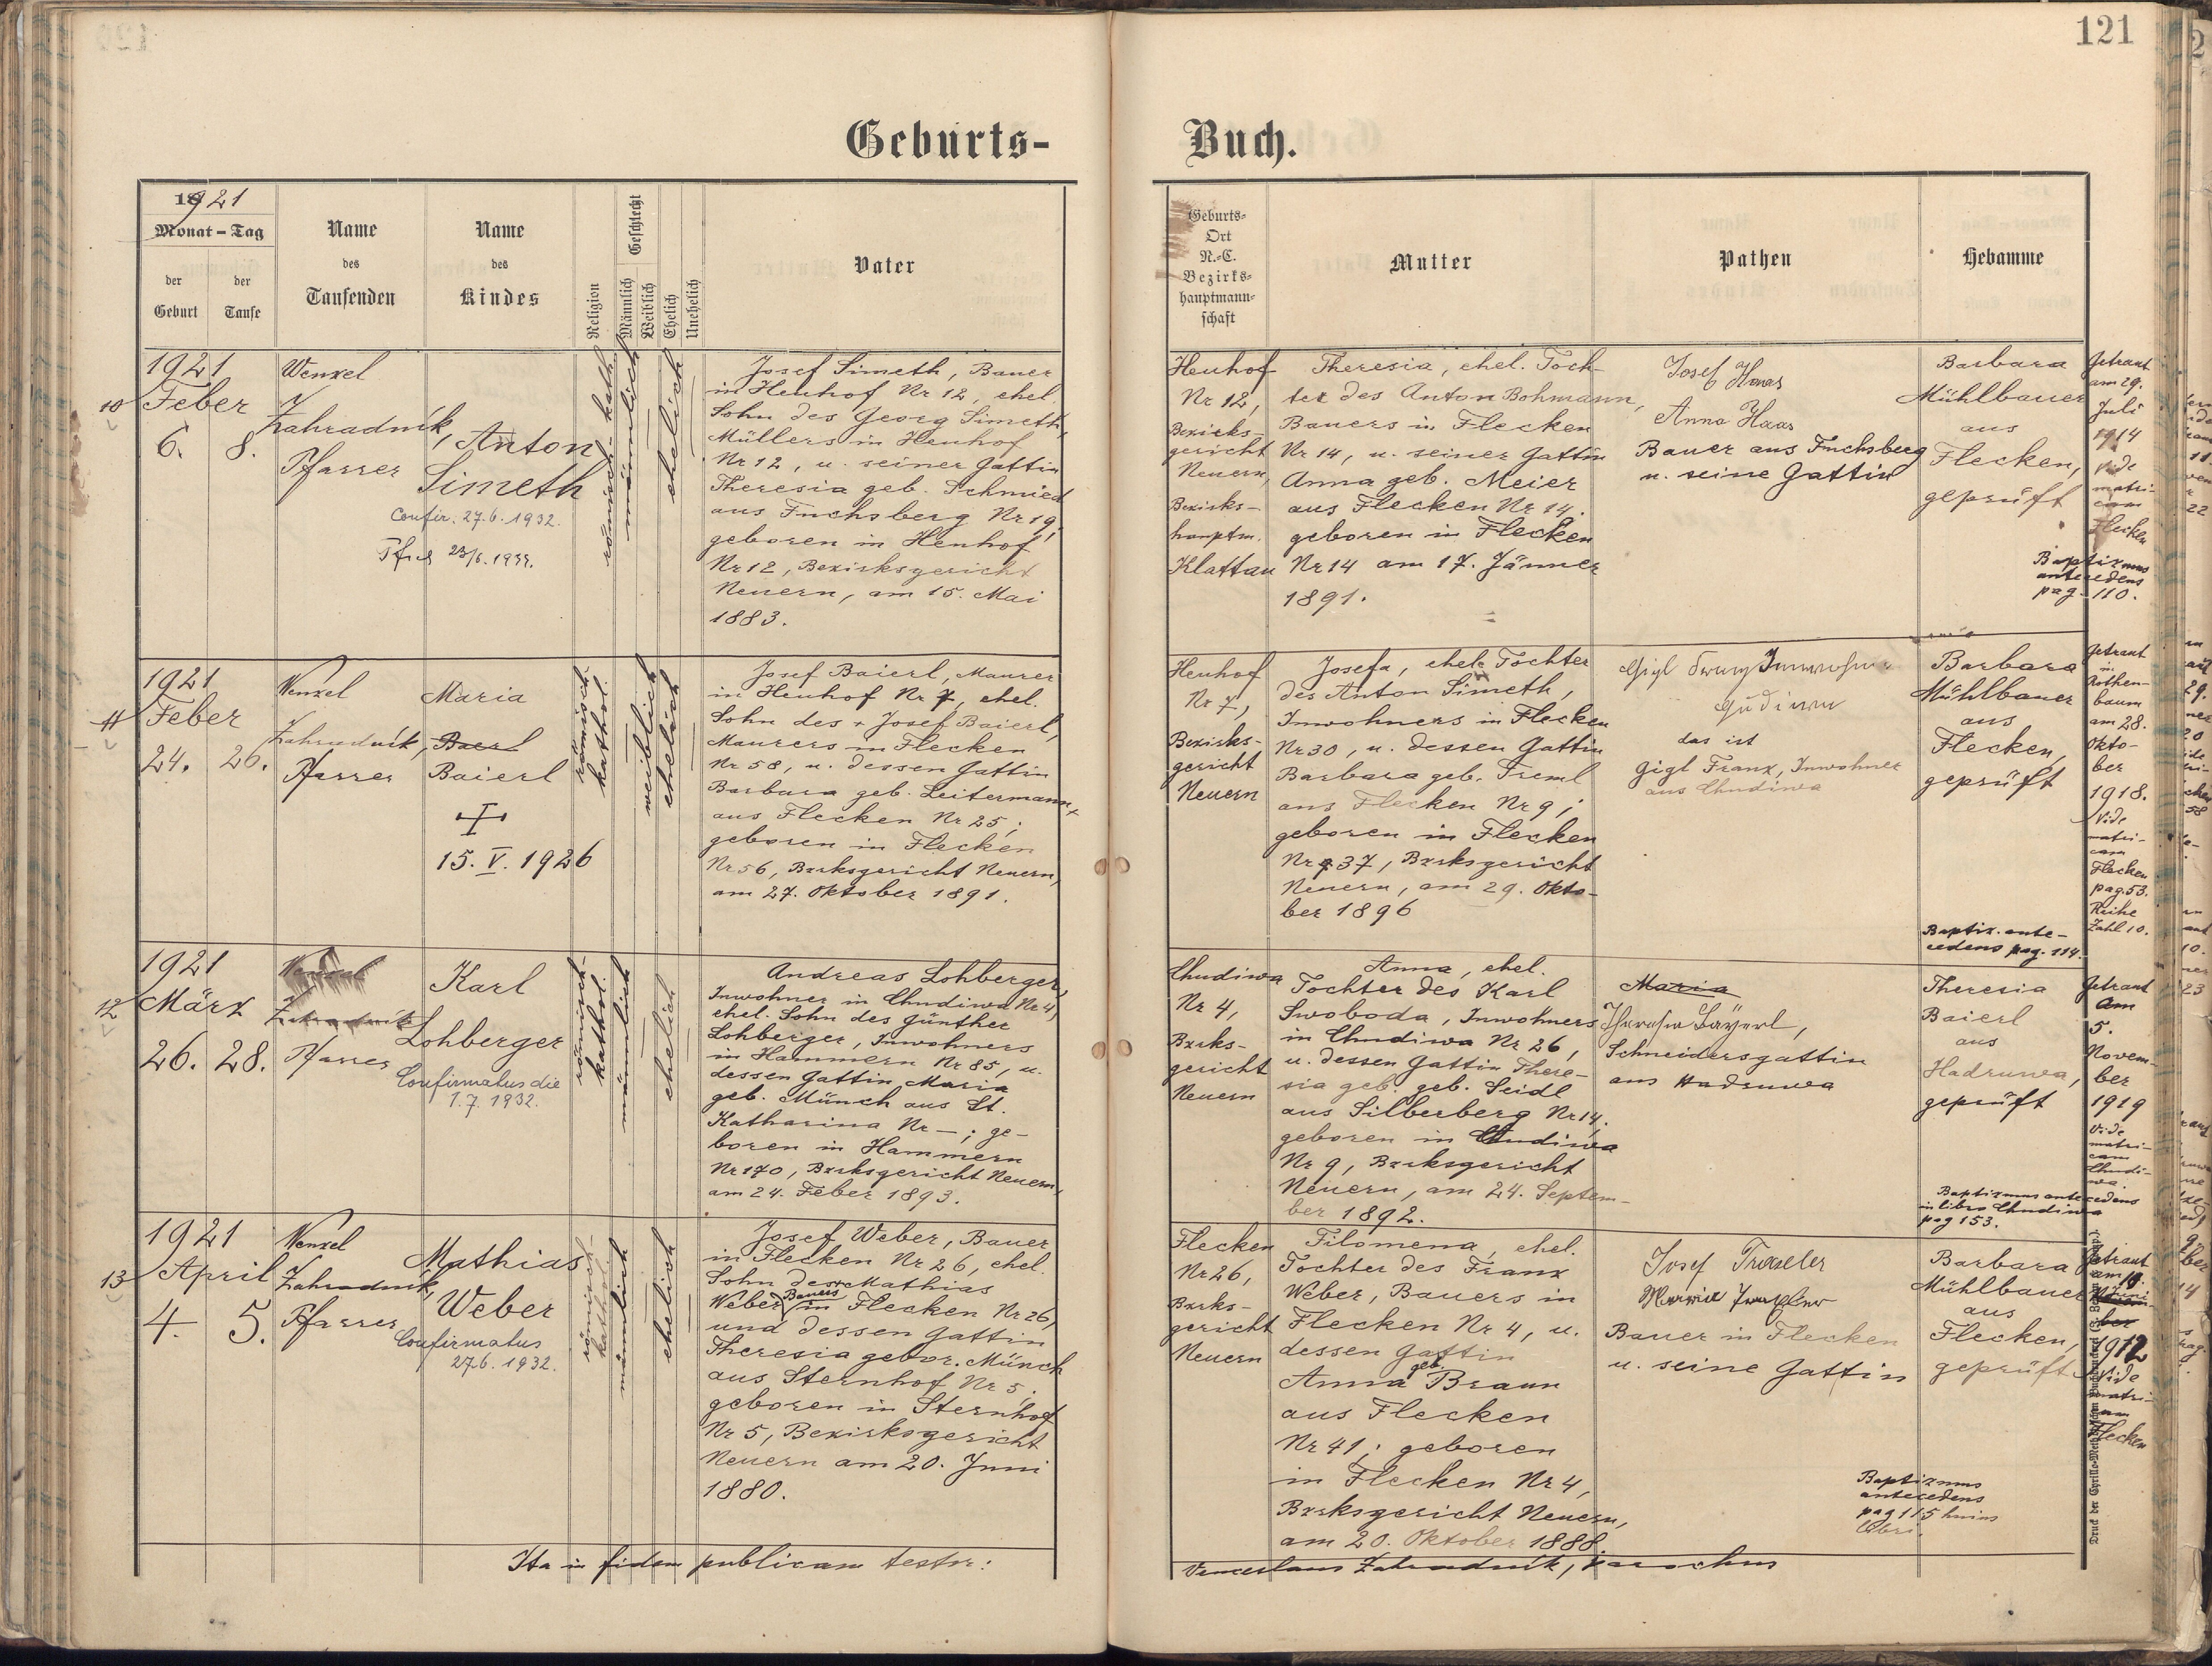 121
Geburts-
Buch.
1921
Monat - Tag
der
Geburt
der
Taufe
Name
des
Taufenden
Name
des
Kindes
Religion
Geschlecht
Männlich
Weiblich
Ehelich
Unehelich
Vater
Geburts-
Ort
N.-C.
Bezirks-
hauptmann-
schaft
Mutter
Pathen
Hebamme
10
1921
Feber
6. 8.
Wenzel
Zahradník,
Pfarrer
Anton
Simeth
Confir. 27.6.1932.
römisch-kath.
männlich
ehelich
Josef Simeth, Bauer
in Heuhof Nr 12, ehel.
Sohn des Georg Simeth,
Müllers in Heuhof
Nr 12, u. seiner Gattin
Theresia geb. Schmied
aus Fuchsberg Nr 19,
geboren in Heuhof
Nr 12, Bezirksgericht
Neuern, am 15. Mai
1883.
Heuhof
Nr 12,
Bezirks-
gericht
Neuern,
Bezirks-
hauptm.
Klattau
Theresia, ehel. Toch-
ter des Anton Bohmann,
Bauers in Flecken
Nr 14, u. seiner Gattin
Anna geb. Meier
aus Flecken Nr 14.
geboren in Flecken
Nr 14 am 17. Jänner
1891.
Josef Haas
Anna Haas
Bauer aus Fuchsberg
u. seine Gattin
Barbara
Mühlbauer
aus
Flecken,
geprüft
Getraut
am 29.
Juli
1914
vide
matri-
cam
Flecken
Baptizmus
antecedens
pag. 110.
11
1921
Feber
24. 26.
Wenzel
Zahradník,
Pfarrer
Maria
Baerl
Baierl
15. V. 1926
römisch-
kathol.
weiblich
ehelich
Josef Baierl, Maurer
in Heuhof Nr 7, ehel.
Sohn des + Josef Baierl,
Maurers in Flecken
Nr 58, u. dessen Gattin
Barbara geb. Leitermann,
aus Flecken Nr 25;
geboren in Flecken
Nr 56, Bzrksgericht Neuern,
am 27. Oktober 1891.
Heuhof
Nr 7,
Bezirks-
gericht
Neuern
Josefa, ehel. Tochter
des Anton Simeth,
Inwohners in Flecken
Nr 30, u. dessen Gattin
Barbara geb. Treml
aus Flecken Nr 9;
geboren in Flecken
Nr 37, Bzrksgericht
Neuern, am 29. Okto-
ber 1896
Gigl Franz Inwohner
das ist
Gigl Franz, Inwohner
aus Chudiwa
Barbara
Mühlbauer
aus
Flecken,
geprüft
Getraut
in
Rothen-
baum
am 28.
Okto-
ber
1918.
Vide
matri-
cam
Flecken
pag. 53.
Reihe
Zahl 10.
Baptiz. ante-
cedens pag. 114.
12
1921
März
26. 28.
Wenzel
Zahradník
Pfarrer
Karl
Lohberger
Confirmatus die
1.7. 1932.
römisch-
kathol.
männlich
ehelich
Andreas Lohberger,
Inwohner in Chudiwa Nr 4,
ehel. Sohn des Günther
Lohberger, Inwohners
in Hammern Nr 85, u.
dessen Gattin Maria
geb. Münch aus St.
Katharina Nr —; ge-
boren in Hammern
Nr 170, Bzrksgericht Neuern,
am 24. Feber 1893.
Chudiwa
Nr 4,
Bzrks-
gericht
Neuern
Anna, ehel.
Tochter des Karl
Swoboda, Inwohners
in Chudiwa Nr 26,
u. dessen Gattin There-
sia geb. geb. Seidl
aus Silberberg Nr 14,
geboren in Chudiwa
Nr 9, Bzrksgericht
Neuern, am 24. Septem-
ber 1892.
Maria
Theresia Bayerl,
Schneidersgattin
aus Hadruwa
Theresia
Baierl
aus
Hadruwa,
geprüft
Getraut
am
5.
Novem-
ber
1919
Vide
matri-
cam
Chudi-
wa.
Baptizmus antecedens
in libro Chudiwa
pag 153.
13
1921
April
4. 5.
Wenzel
Zahradník,
Pfarrer
Mathias
Weber
Confirmatus
27.6. 1932.
römisch-
kathol.
männlich
ehelich
Josef Weber, Bauer
in Flecken Nr 26, ehel.
Sohn des Mathias
Weber Bauers in Flecken Nr 26,
und dessen Gattin
Theresia gebor. Münch
aus Sternhof Nr 5;
geboren in Sternhof
Nr 5, Bezirksgericht
Neuern am 20. Juni
1880.
Flecken
Nr 26,
Bzrks-
gericht
Neuern
Filomena, ehel.
Tochter des Franz
Weber, Bauers in
Flecken Nr 4, u.
dessen Gattin
Anna geb. Braun
aus Flecken
Nr 41; geboren
in Flecken Nr 4,
Bzrksgericht Neuern,
am 20. Oktober 1888.
Josef
Maria
Bauer in Flecken
u. seine Gattin
Barbara
Mühlbauer
aus
Flecken,
geprüft
Getraut
Juni
1912
Vide
matri-
cam
Flecken
Baptizmus
antecedens
pag 115 huius
libri.
Ita in fidem publicam testor:
Venceslaus Zahradník, parochus